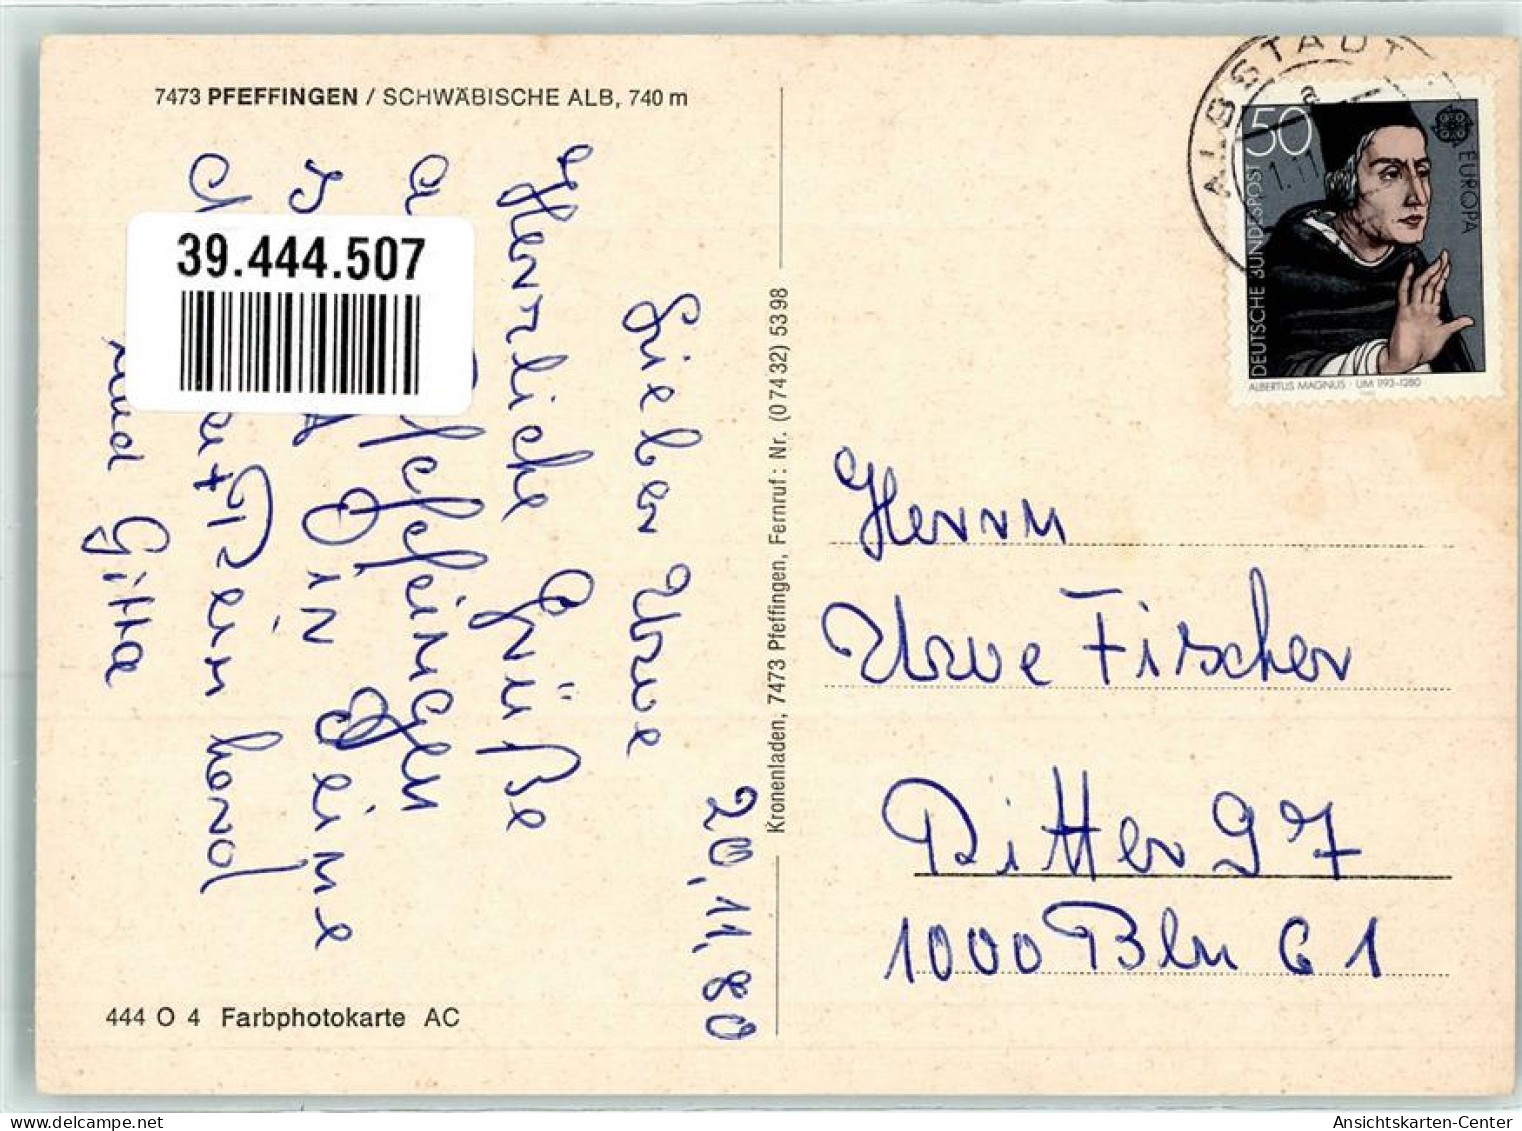 7473 PFEFFINGEN / SCHWÄBISCHE ALB, 740 m
20.11.80
Lieber Uwe
Herrliche Grüße
Pfeffingen
Din Deine
Reinhard
und Gitta
39.444.507
444 O 4 Farbphotokarte AC
Kronenladen, 7473 Pfeffingen, Fernruf: Nr. (07432) 5398
ALBSTADT
a
1.11
50
DEUTSCHE BUNDESPOST
EUROPA
ALBERTUS MAGNUS · UM 1193-1280
Herrn
Uwe Fischer
Ritter 97
1000 Bln 61
Ansichtskarten-Center